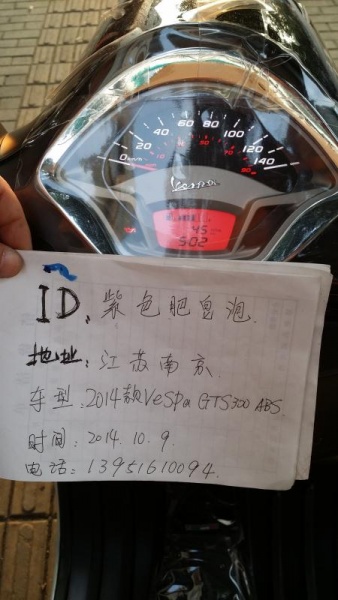 0 20 40 60 80 100 120 140
km/h
Vespa
502
ID: 紫色肥皂泡.
地址: 江苏南京.
车型: 2014款VeSpa GTS300 ABS.
时间: 2014.10.9.
电话: 13951610094.